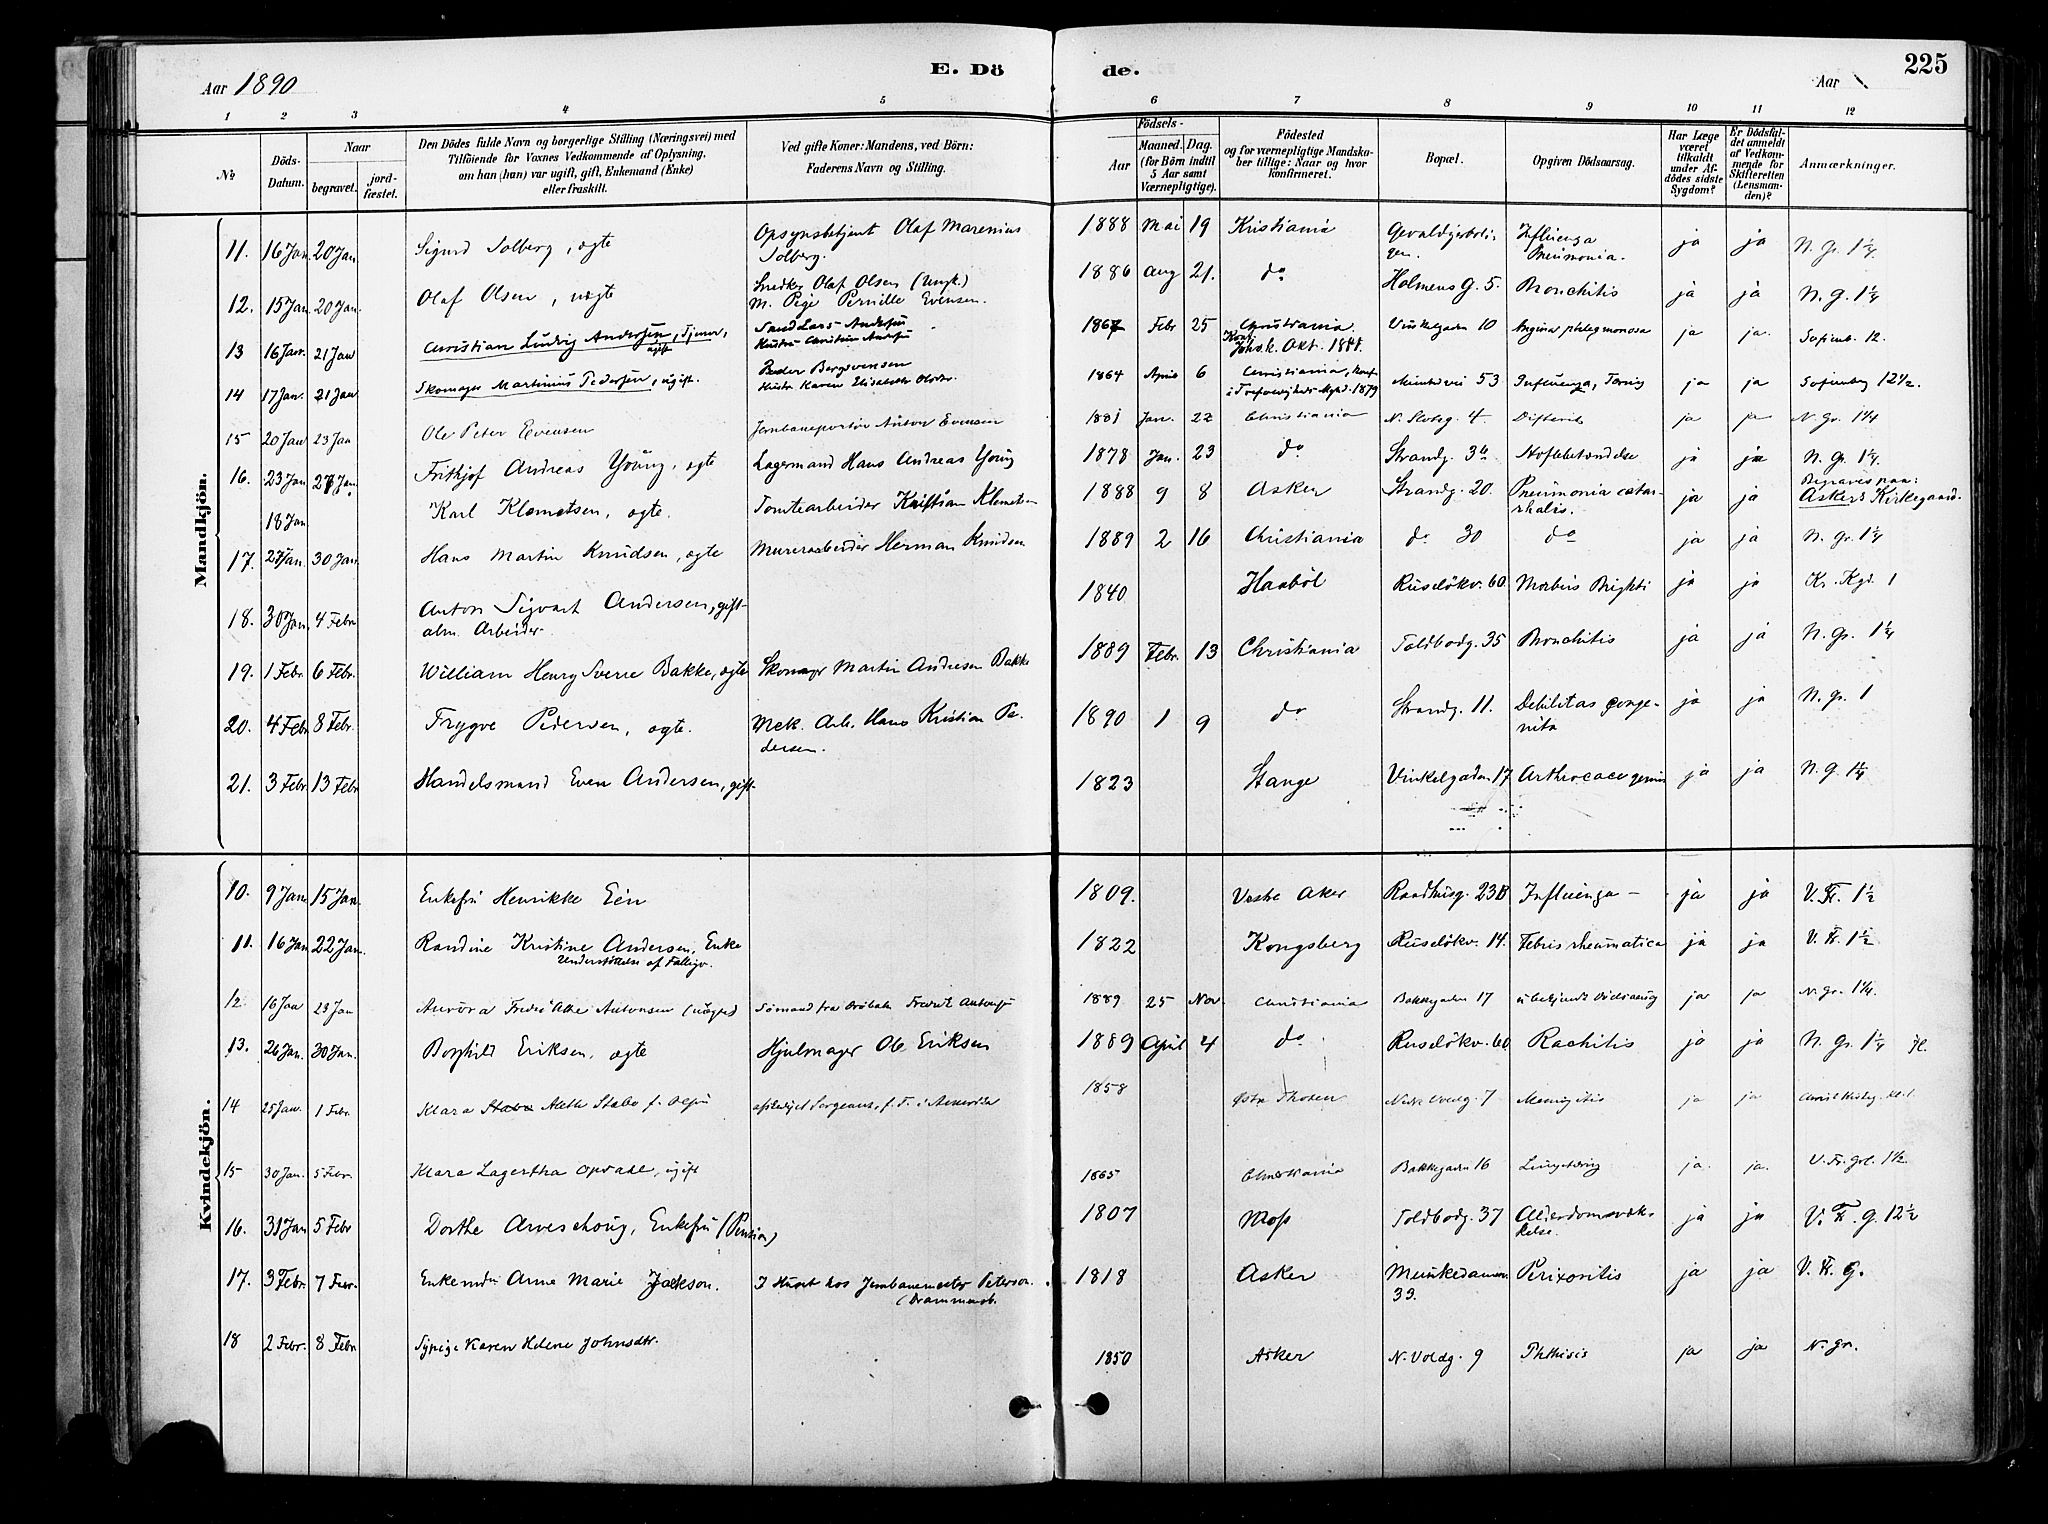 Aar 1890
E. Dö de.
Aar
225
1 2 3 4 5 6 7 8 9 10 11 12
№
Döds-Datum.
Naar
begravet.
jord-fæstet.
Den Dödes fulde Navn og borgerlige Stilling (Næringsvei) med
Tilföiende for Voxnes Vedkommende af Oplysning,
om han (hun) var ugift, gift, Enkemand (Enke)
eller fraskilt.
Ved gifte Koner: Mandens, ved Börn:
Faderens Navn og Stilling.
Födsels-
Aar
Maaned. Dag.
(for Börn indtil
5 Aar samt
Værnepligtige).
Födested
og for værnepligtige Mandska-
ber tillige: Naar og hvor
konfirmeret.
Bopæl.
Opgiven Dödsaarsag.
Har Læge
været
tilkaldt
under Af-
dödes sidste
Sygdom?
Er Dödsfal-
det anmeldt
af Vedkom-
mende for
Skifteretten
(Lensman-
den)?
Anmærkninger.
Mandkjön.
11. 16 Jan. 20 Jan. Sigurd Solberg, ægte Opsynsbetjent Olaf Marenius Solberg. 1888 Mai 19 Kristiania Influenza Pneumonia. ja ja N. Gr. 1¼
12. 15 Jan. 20 Jan. Olaf Olsen, uægte Snedker Olaf Olsen (Ungk.) M. Pige Pernille Evensen. 1886 Aug 21. do Holmens G. 5. Bronchitis ja ja N. G. 1¼
13 16 Jan. 21 Jan Christian Ludvig Andersen, Tjener, ugift 1867 Febr 25 Christiania. Vinkelgaden 10 Angina phlegmonosa ja ja. Sofienb. 12.
14 17 Jan. 21 Jan Skomager Martinius Pedersen, ugift. Peder Bergsvensen 1864 April 6 Christiania, 1879 53 Influenza, ja ja Sofienberg 12½.
15 20 Jan 23 Jan Ole Peter Evensen Jernbaneportør Anton Evensen 1881 Jan. 22 Christiania N. Slotsg. 4 Difterit ja ja N. Gr. 1¼
16. 23 Jan 27 Jan. Frithjof Andreas Young, ægte Lagermand Hans Andreas Young 1878 Jan. 23 do Strandg. 36 Hoftebetændelse ja ja N. Gr. 1¼.
18 Jan Karl Klemetsen, ægte. Tomtearbeider Kristian Klemetsen 1888 9 8 Asker Strandg. 20. Pneumonia catarrhalis. ja ja Begraves paa: Askers Kirkegaard.
17. 27 Jan. 30 Jan. Hans Martin Knudsen, ægte Murerarbeider Herman Knudsen 1889 2 16 Christiania do 30 do ja ja N. Gr. 1¼
18. 30 Jan. 4 Febr Anton Sigvart Andersen, gift alm. Arbeider. 1840 Haaböl Ruselökv. 60 Morbus Brighti ja ja Kr. Kgd. 1
19. 1 Febr 6 Febr. William Henry Sverre Bakke, ægte Skomager Martin Andresen Bakke 1889 Febr. 13 Christiania Toldbodg. 35 Bronchitis ja ja N. Gr. 1¼
20. 4 Febr 8 Febr. Trygve Pedersen, ægte. Mek. Arb. Hans Kristian Pedersen. 1890 1 9 do Strandg. 11. Debilitas congenita ja ja N. Gr. 1
21. 3 Febr 13 Febr Handelsmand Even Andersen, gift. 1823 Stange Vinkelgaden 17 Arthrocace genus ja ja N. G. 1¼
Kvindekjön.
10. 9 Jan 15 Jan Enkefru Henrikke Eén 1809. Vestre Aker Raadhusg. 23B Influenza – ja ja V. Fr. 1½
11. 16 Jan 22 Jan. Randine Kristine Andersen, Enke Understöttelse af Fattigv. 1822 Kongsberg Ruselökv. 14. Febris rheumatica ja ja V. Fr. 1½
12 16 Jan 23 Jan Aurora Antonsen (uægte) Sømand fra Drøbak Fredrik Antonsen 1889 25 Nov Christiania Bakkegaden 17 ubekjendt Dødsaarsag ja ja N. Gr. 1¼.
13. 26 Jan. 30 Jan. Borghild Eriksen, ægte Hjulmager Ole Eriksen 1889 April 4 do Ruselökv. 60 Rachitis ja ja N. Gr. 1¼
14 25 Jan. 1 Febr. Klara Alethe Stabo f. 1858 7 Meningitis ja ja
15 30 Jan. 5 Febr. Klara Lagertha Opdahl, ugift 1865 Christiania Bakkegaden 16 ja. ja. V. Fr. Gr. 1½
16. 31 Jan 5 Febr Dorthe Arveschoug, Enkefru (Pension) 1807 Moss Toldbodg. 37 Alderdomssvækkelse. ja ja V. Fr. G. 12½
17. 3 Febr. 7 Febr. Enkemdm Anne Marie Jackson. I Huset hos Jernbanemester Peterson. (Drammensb. 1818 Asker Munkedamsv. 33. Peritonitis ja ja V. Fr. G.
18 2 Febr. 8 Febr Sypige Karen Helene Johnsdtr. 1850 Asker N. Voldg. 9 Phthisis ja ja N. Gr.